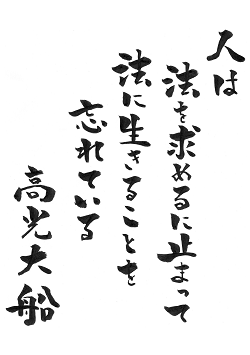 人は
法を求めるに止まって
法に生きることを
忘れている
高光大船